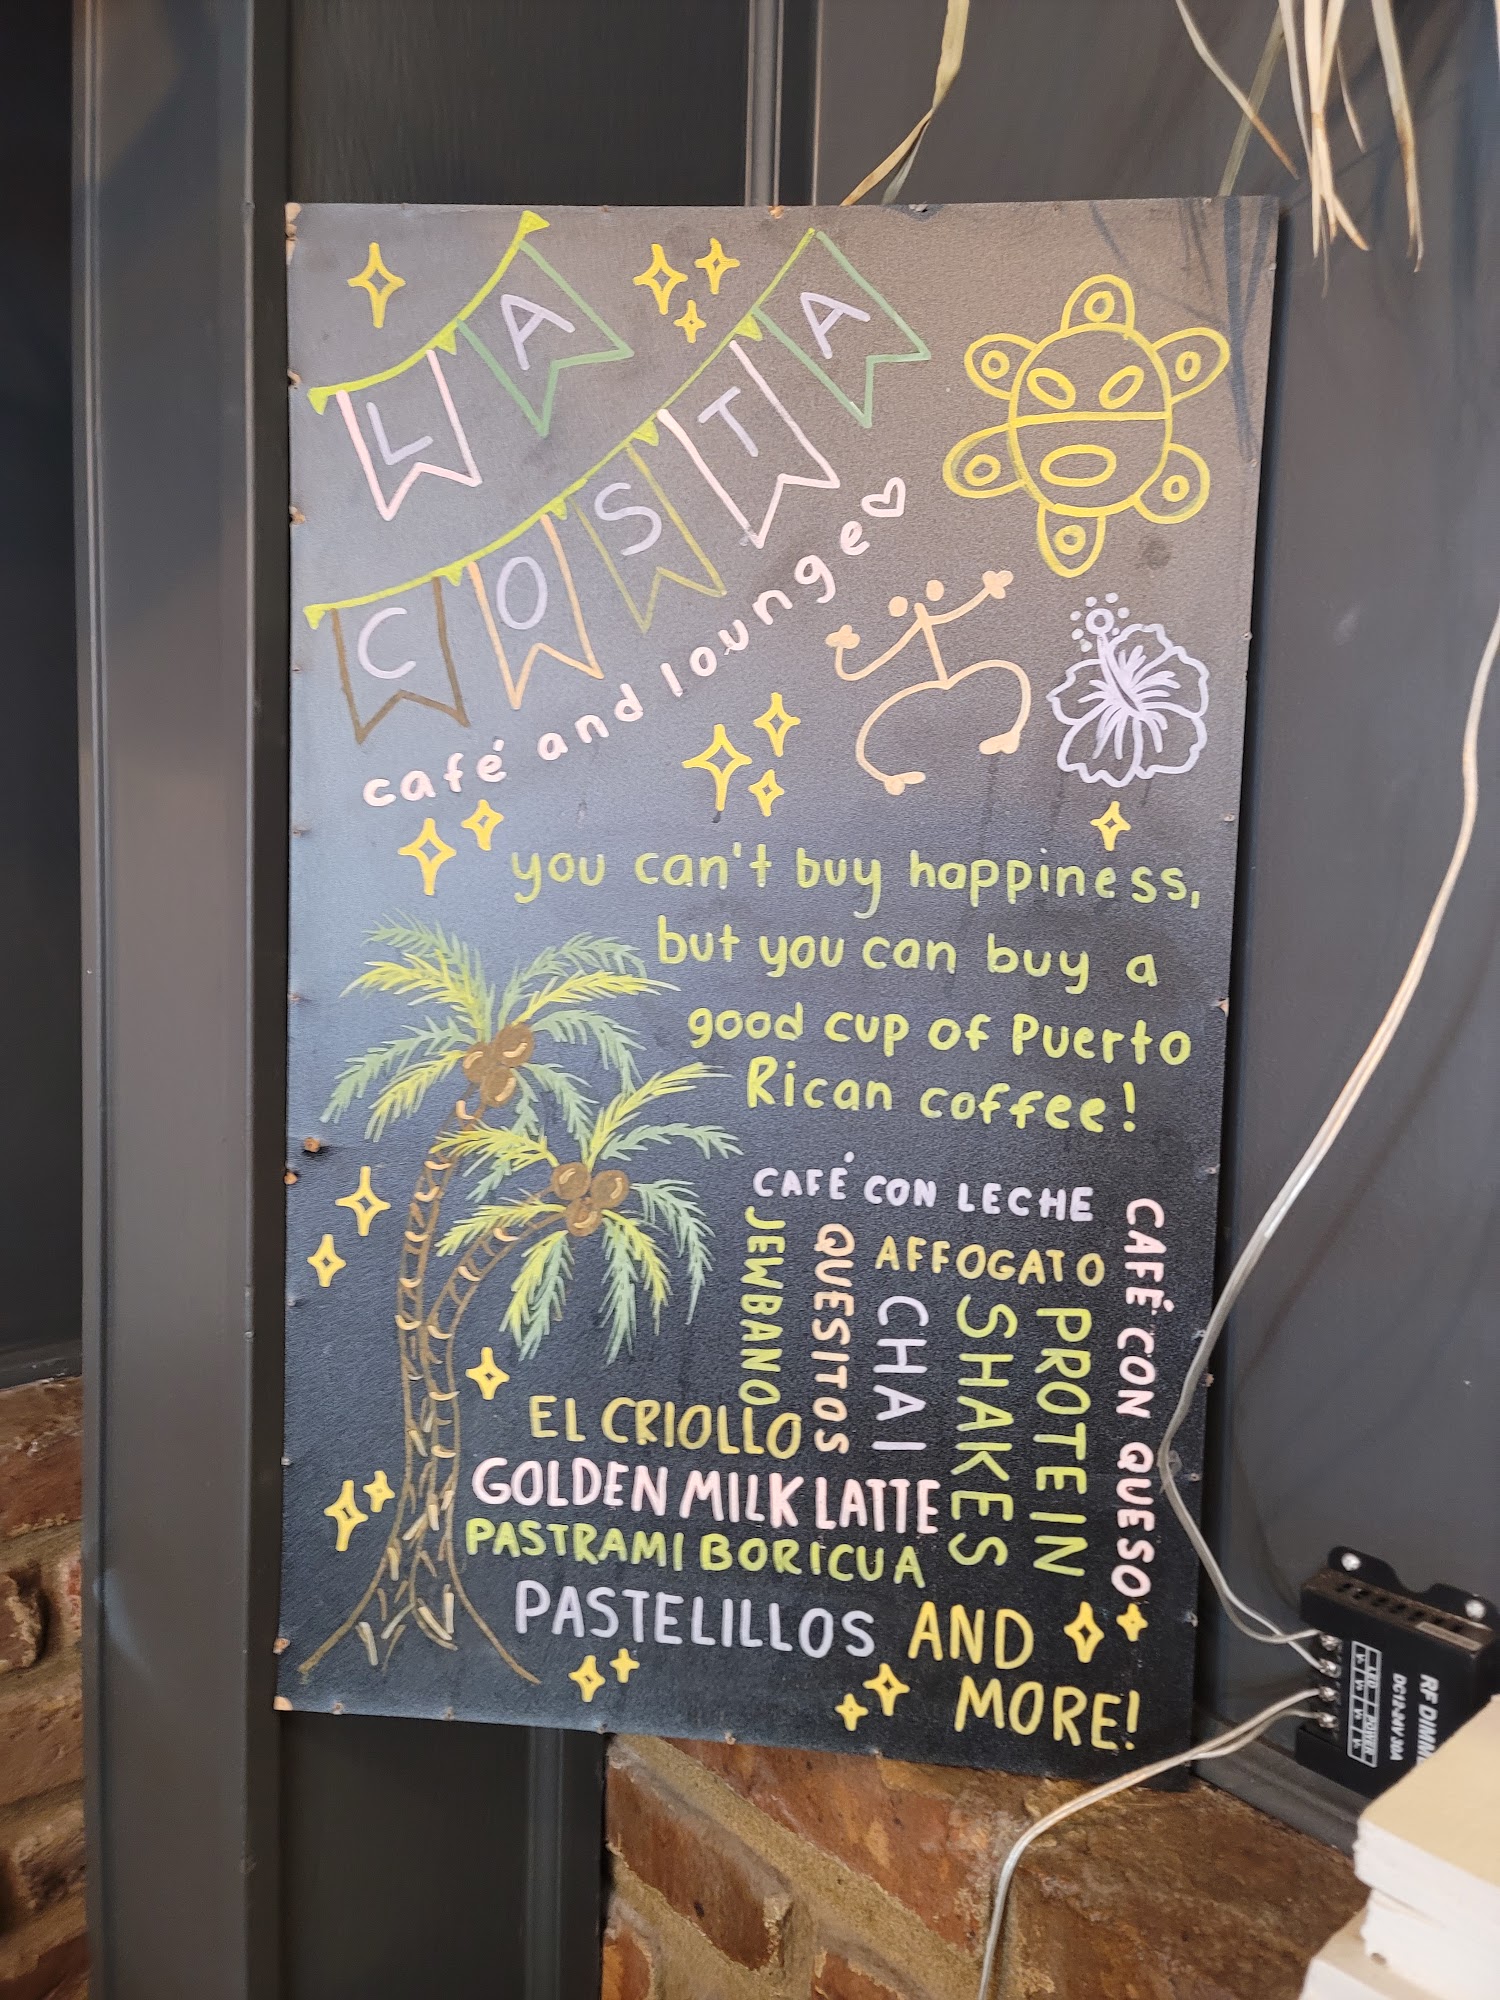 LA
COSTA
café and lounge
you can't buy happiness,
but you can buy a
good cup of Puerto
Rican coffee!
CAFÉ CON LECHE
CAFÉ CON QUESO
JEWBANO
QUESITOS
AFFOGATO
CHAI
SHAKES
PROTEIN
EL CRIOLLO
GOLDEN MILK LATTE
PASTRAMI BORICUA
PASTELILLOS AND
MORE!
LED POWER
V- V+ V- V+
DC12-24V 30A